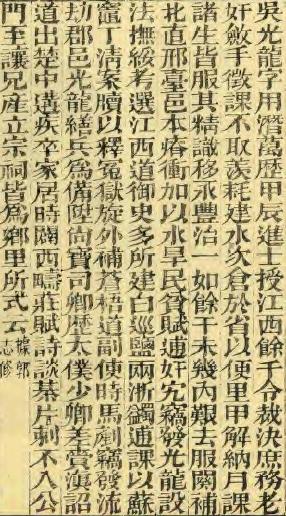 吳光龍字用潛萬歷甲辰進士授江西餘干令裁決庶務老
奸斂手徵課不取羨耗建水次倉於省以便里甲解納月課
諸生皆服其精識移永豐治一如餘干未幾內艱去服闋補
北直邢臺邑本瘠衝加以水旱民貧賦逋奸宄竊發光龍設
法撫綏考選江西道御史多所建白巡鹽兩浙蠲逋課以蘇
竈丁清案牘以釋冤獄旋外補蒼梧道副使時馬劇竊發流
劫郡邑光龍繕兵為備陞尚寶司卿歷太僕少卿差賫滇詔
道出楚中遘疾卒家居時闢西疇莊賦詩談棊片刺不入公
門至讓兄產立宗祠皆為鄉里所式云據郭志修